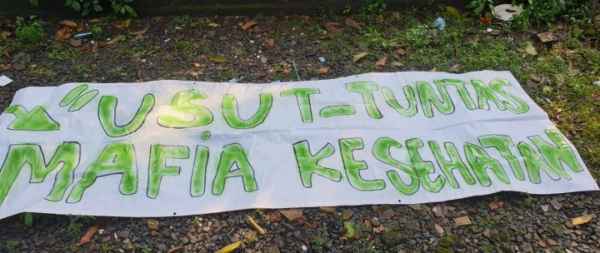 "USUT-TUNTAS
MAFiA KESEHATAN